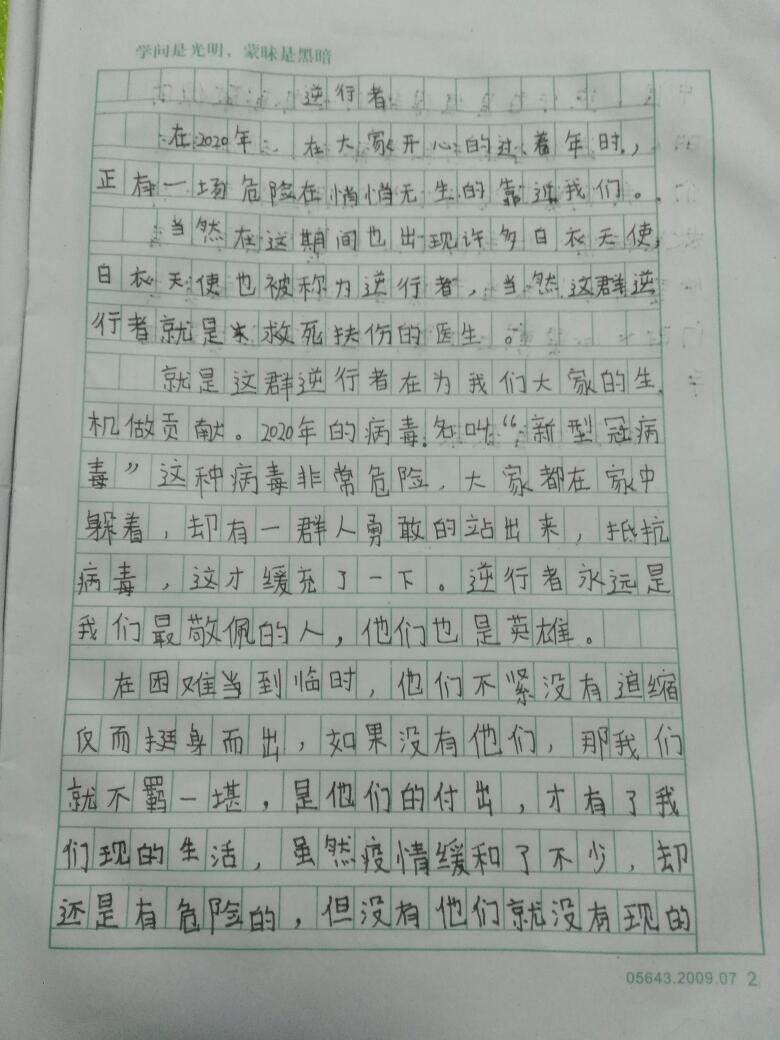 学问是光明，蒙昧是黑暗
逆行者
在2020年，在大家开心的过着年时，
正有一场危险在悄悄无生的靠近我们。
当然在这期间也出现许多白衣天使，
白衣天使也被称为逆行者，当然这群逆
行者就是来救死扶伤的医生。
就是这群逆行者在为我们大家的生
机做贡献。2020年的病毒名叫“新型冠病
毒”这种病毒非常危险，大家都在家中
躲着，却有一群人勇敢的站出来，抵抗
病毒，这才缓充了一下。逆行者永远是
我们最敬佩的人，他们也是英雄。
在困难当到临时，他们不紧没有追缩
仅而挺身而出，如果没有他们，那我们
就不羁一堪，是他们的付出，才有了我
们现的生活，虽然疫情缓和了不少，却
还是有危险的，但没有他们就没有现的
05643.2009.07 2